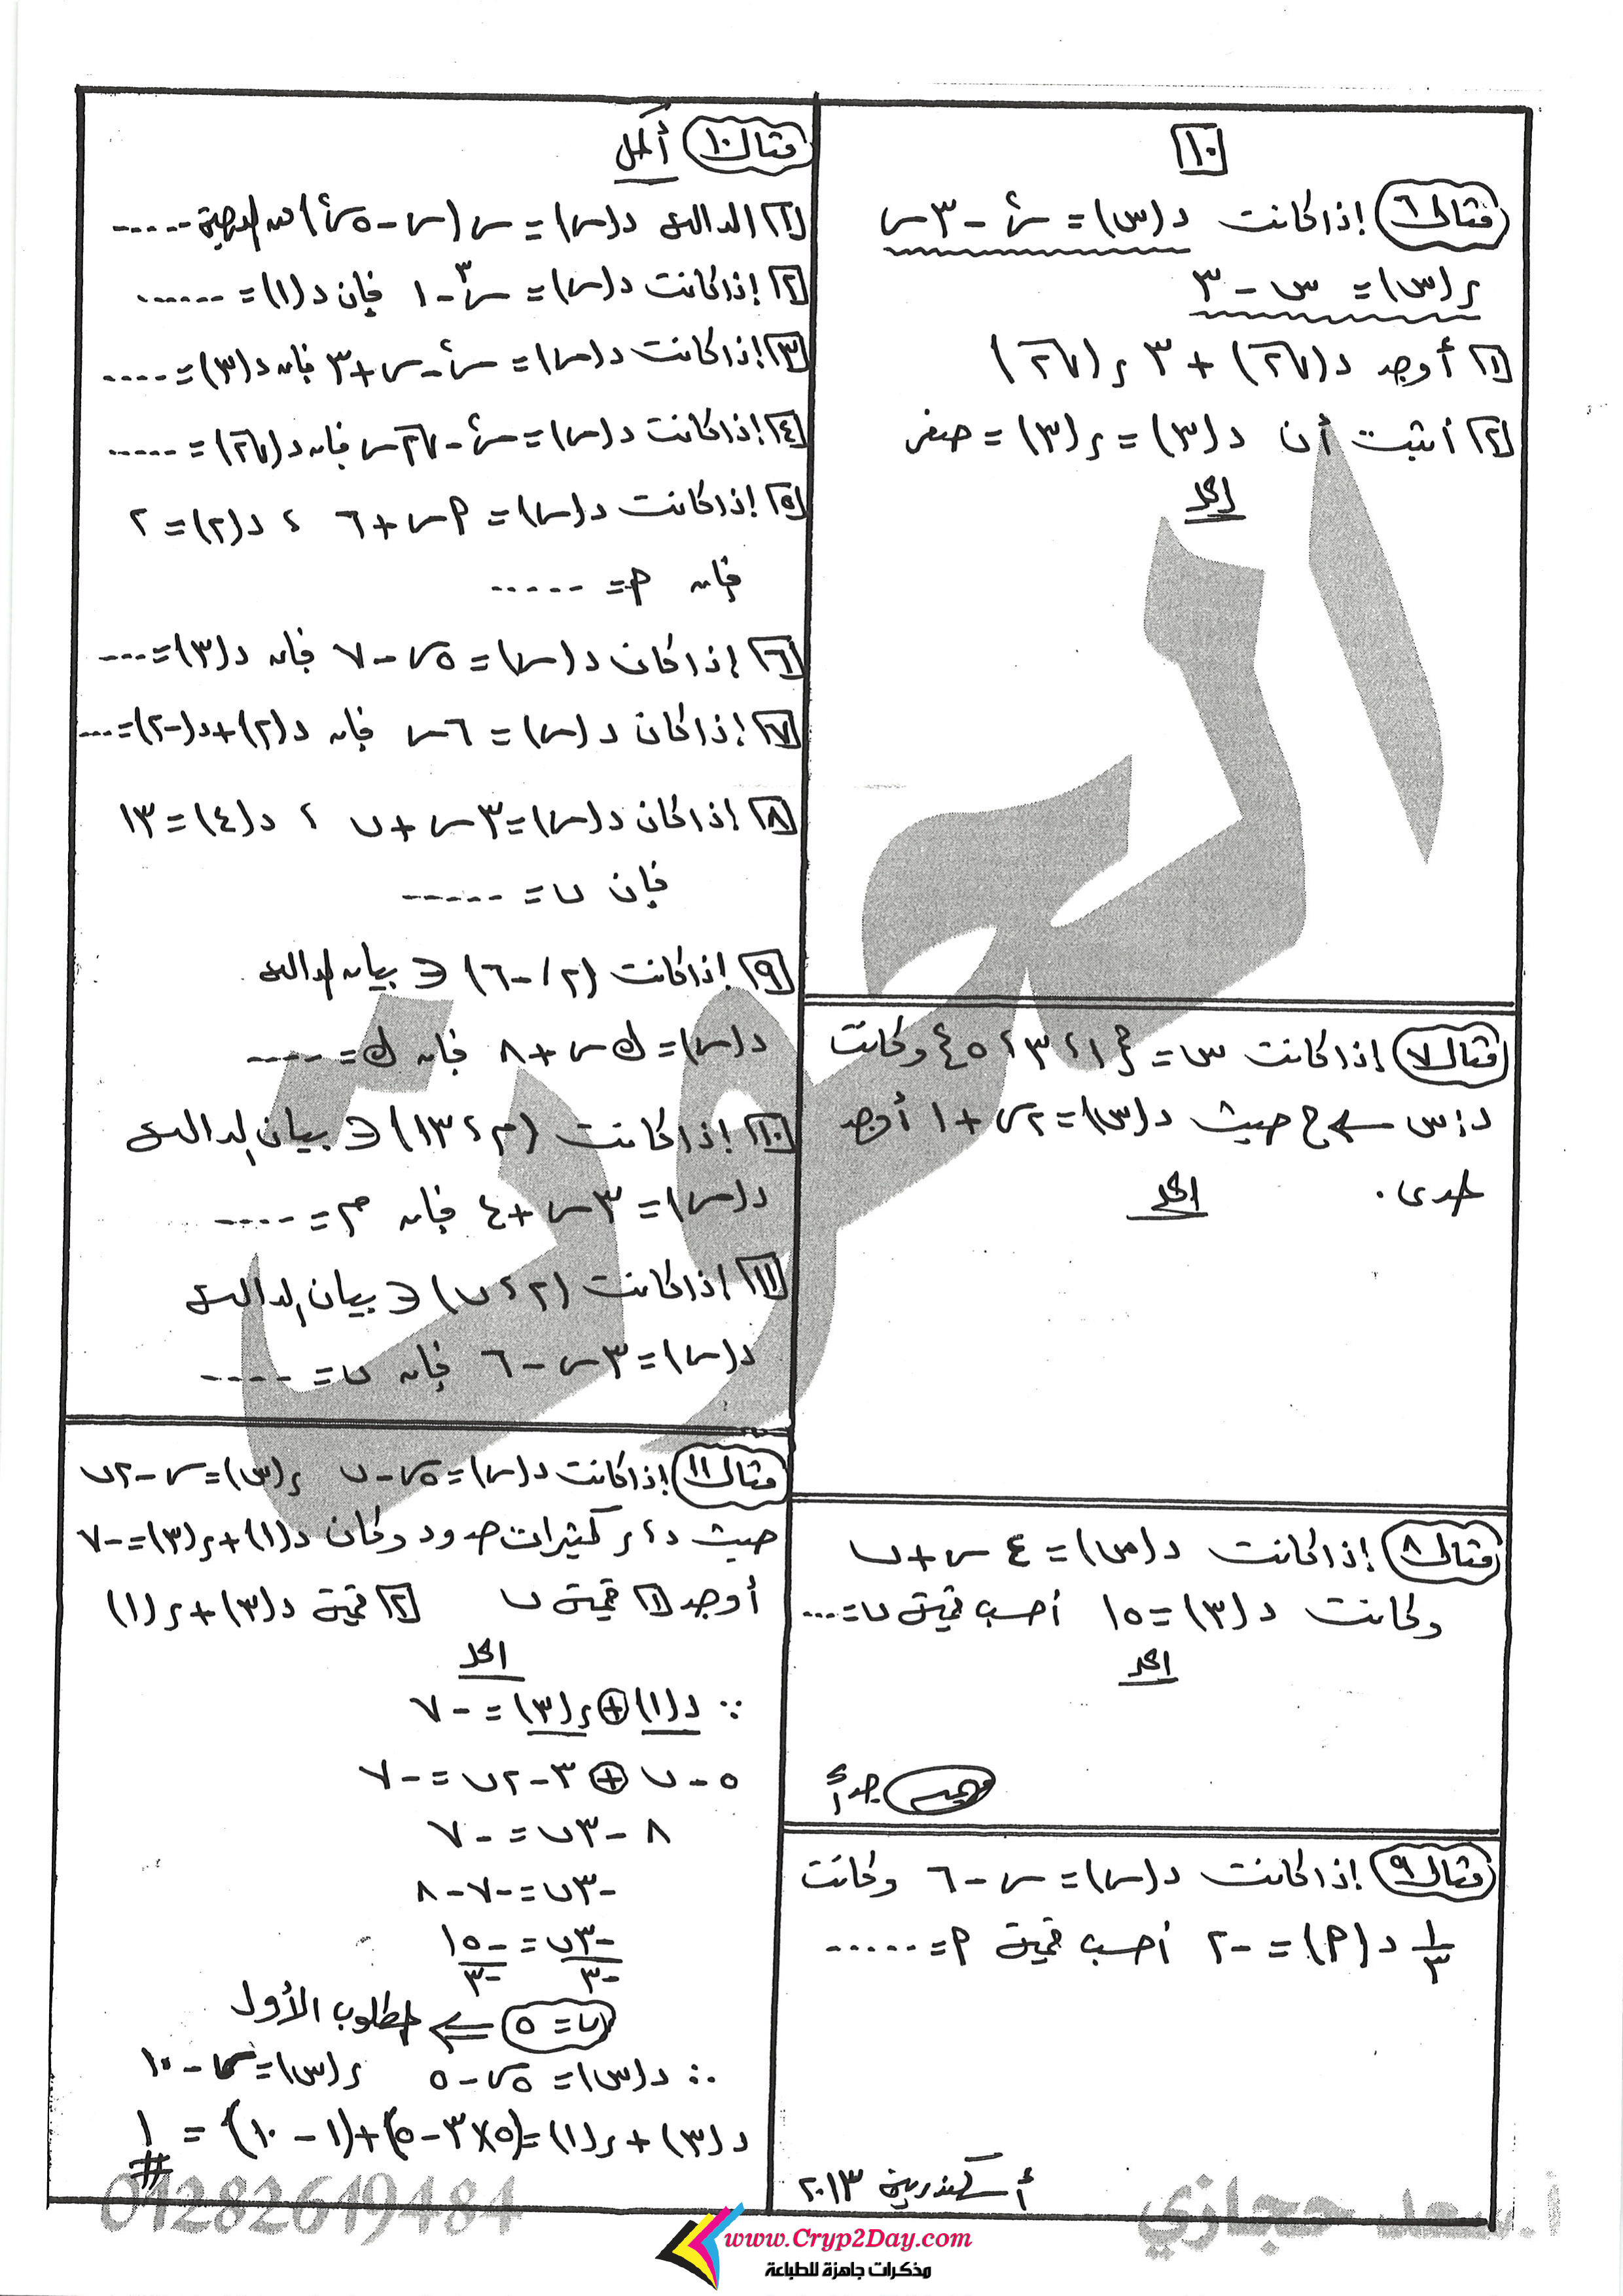 ١٠
مثال ٦ إذا كانت د(س) = س٢ - ٣س
ر(س) = س - ٣
١ أوجد د(√٢) + ٣ ر(√٢)
٢ أثبت أن د(٣) = ر(٣) = صفر
الحل
مثال ٧ إذا كانت س = {١، ٣، ٥} وكانت
د: س ← ح حيث د(س) = ٢س + ١ أوجد
المدى. الحل
مثال ٨ إذا كانت د(س) = ٤س + ب
وكانت د(٣) = ١٥ أحسب قيمة ب = ....
الحل
مهم جداً
مثال ٩ إذا كانت د(س) = س - ٦ وكانت
١/٣ د(م) = -٢ أحسب قيمة م = ......
أسكندرية ٢٠١٣
مثال ١٠ أكمل
١ الدالة د(س) = س(س - ٥س٢) من الدرجة -----
٢ إذا كانت د(س) = س٣ - ١ فإن د(١) = ------
٣ إذا كانت د(س) = س٢ - س + ٣ فإن د(٣) = ----
٤ إذا كانت د(س) = س٢ - √٢ س فإن د(√٢) = -----
٥ إذا كانت د(س) = م س + ٦ ، د(٢) = ٢
فإن م = -----
٦ إذا كان د(س) = ٥س - ٧ فإن د(٣) = ---
٧ إذا كان د(س) = ٦س فإن د(٢) + د(-٢) = ---
٨ إذا كان د(س) = ٣س + ب ، د(٤) = ١٣
فإن ب = -----
٩ إذا كانت (٢، -٦) ∈ بيان الدالة
د(س) = ك س + ٨ فإن ك = ----
١٠ إذا كانت (م، ١٣) ∈ بيان الدالة
د(س) = ٣س + ٤ فإن م = ----
١١ إذا كانت (٢، ب) ∈ بيان الدالة
د(س) = ٣س - ٦ فإن ب = ----
مثال ١١ إذا كانت د(س) = ٥س - ب ر(س) = س - ٢ب
حيث د، ر كثيرات حدود وكان د(١) + ر(٣) = -٧
أوجد ١ قيمة ب ٢ قيمة د(٣) + ر(١)
الحل
∵ د(١) + ر(٣) = -٧
٥ - ب + ٣ - ٢ب = -٧
٨ - ٣ب = -٧
-٣ب = -٧ - ٨
-٣ب/-٣ = -١٥/-٣
ب = ٥ ⇐ المطلوب الأول
∴ د(س) = ٥س - ٥ ر(س) = س - ١٠
د(٣) + ر(١) = (٥×٣ - ٥) + (١ - ١٠) = ١ #
أ.سعد حجازي
01282619484
www.Cryp2Day.com
مذكرات جاهزة للطباعة